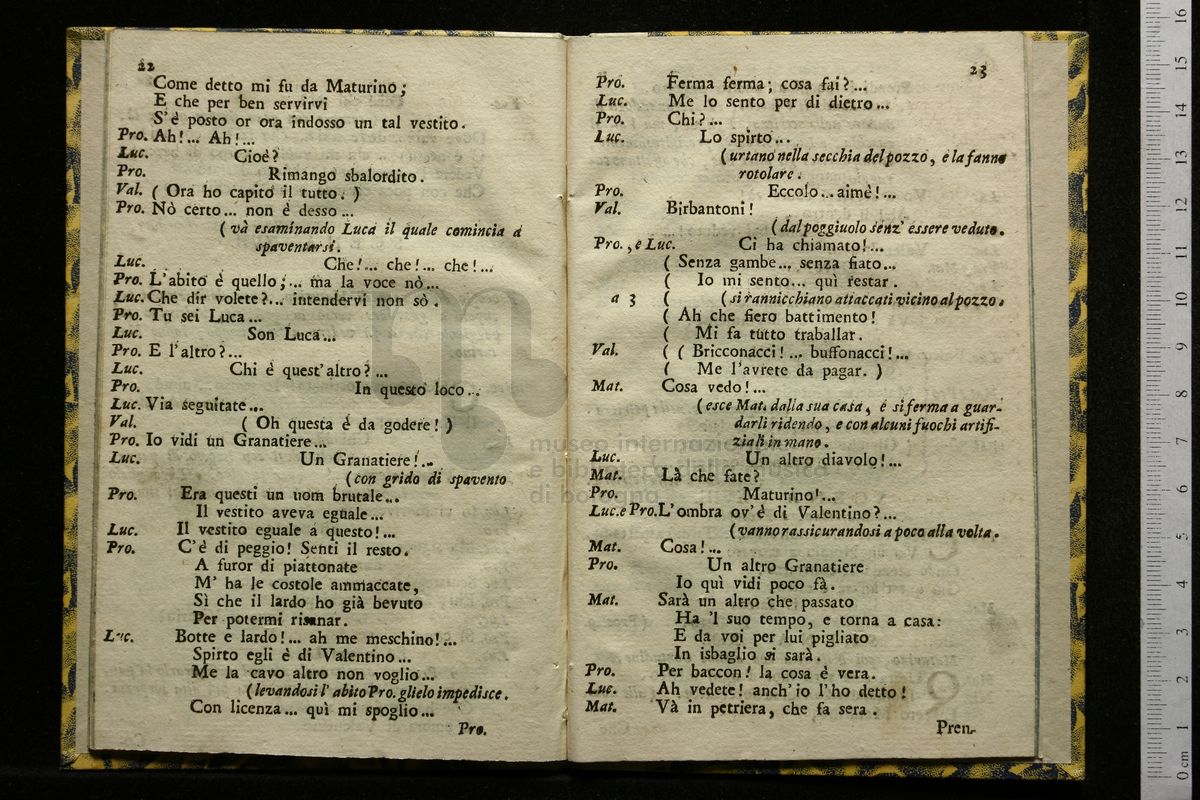 22
Come detto mi fu da Maturino;
E che per ben servirvi
S'è posto or ora indosso un tal vestito.
Pro. Ah!... Ah!...
Luc. Cioè?
Pro. Rimango sbalordito.
Val. ( Ora ho capito il tutto. )
Pro. Nò certo... non è desso...
( và esaminando Luca il quale comincia a
spaventarsi.
Luc. Che!... che!... che!...
Pro. L'abito è quello;... ma la voce nò...
Luc. Che dir volete?... intendervi non sò.
Pro. Tu sei Luca...
Luc. Son Luca...
Pro. E l'altro?...
Luc. Chi è quest'altro?...
Pro. In questo loco...
Luc. Via seguitate...
Val. ( Oh questa è da godere! )
Pro. Io vidi un Granatiere...
Luc. Un Granatiere!...
(con grido di spavento
Pro. Era questi un uom brutale...
Il vestito aveva eguale...
Luc. Il vestito eguale a questo!...
Pro. C'è di peggio! Senti il resto.
A furor di piattonate
M' ha le costole ammaccate,
Sì che il lardo ho già bevuto
Per potermi risanar.
Luc. Botte e lardo!... ah me meschino!...
Spirto egli è di Valentino...
Me la cavo altro non voglio...
(levandosi l' abito Pro. glielo impedisce.
Con licenza... quì mi spoglio...
Pro.
23
Pro. Ferma ferma; cosa fai?...
Luc. Me lo sento per di dietro...
Pro. Chi?...
Luc. Lo spirto...
( urtano nella secchia del pozzo, e la fanno
rotolare.
Pro. Eccolo... aimè!...
Val. Birbantoni!
(dal poggiuolo senz' essere veduto.
Pro., e Luc. Ci ha chiamato!...
( Senza gambe... senza fiato...
( Io mi sento... quì restar.
a 3 ( (si rannicchiano attaccati vicino al pozzo.
( Ah che fiero battimento!
( Mi fa tutto traballar.
Val. ( ( Bricconacci!... buffonacci!...
( Me l'avrete da pagar. )
Mat. Cosa vedo!...
(esce Mat. dalla sua casa, e si ferma a guar-
darli ridendo, e con alcuni fuochi artifi-
ziali in mano.
Luc. Un altro diavolo!...
Mat. Là che fate?
Pro. Maturino!...
Luc. e Pro. L'ombra ov'è di Valentino?...
(vanno rassicurandosi a poco alla volta.
Mat. Cosa!...
Pro. Un altro Granatiere
Io quì vidi poco fà.
Mat. Sarà un altro che passato
Ha 'l suo tempo, e torna a casa:
E da voi per lui pigliato
In isbaglio si sarà.
Pro. Per baccon! la cosa è vera.
Luc. Ah vedete! anch'io l'ho detto!
Mat. Và in petriera, che fa sera.
Pren-
museo internazionale
e biblioteca della musica
di bologna
0 cm 1 2 3 4 5 6 7 8 9 10 11 12 13 14 15 16